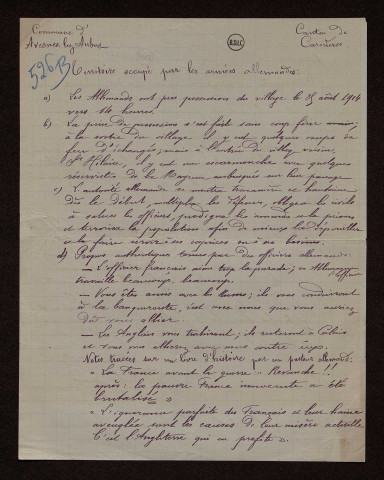 Commune d'
Avesnes lez Aubert
Canton de
Carnières
B.D.I.C
526 B
Territoire occupé par les armées allemandes.
a) Les Allemands ont pris possession du village le 25 août 1914
vers 14 heures.
b) La prise de possession s'est faite sans coup férir;
à la sortie du village il y eut quelques coups de
feu d'échangés; mais à l'entrée du village voisin,
St Hilaire, il y eut une escarmouche avec quelques
réservistes de la embusqués sur leur passage.
c) L'autorité allemande se montra tracassière et hautaine
dès le début, multiplia les obligea les civils
à saluer les officiers, prodigua les amendes et la prison
et terrorisa la population afin de mieux la dépouiller
et la faire servir à ses caprices ou à ses besoins.
d) Propos authentiques tenus par des officiers allemands:
— L'officier français aime trop la parade; en Allemagne l'officier
travaille beaucoup, beaucoup.
— Vous êtes amis avec les Russes; ils vous conduiront
à la banqueroute, c'est avec nous que vous auriez
dû vous allier.
— Les Anglais vous trahiront; ils resteront à Calais
et vous vous allierez avec nous contre eux.
Notes tracées sur un livre d'histoire par un pasteur allemand:
" La France avant la guerre - Revanche!!
après: la pauvre France innocente a été
brutalisée "
" L'ignorance parfaite des Français et leur haine
aveuglée sont les causes de leur misère actuelle
C'est l'Angleterre qui en profite ".